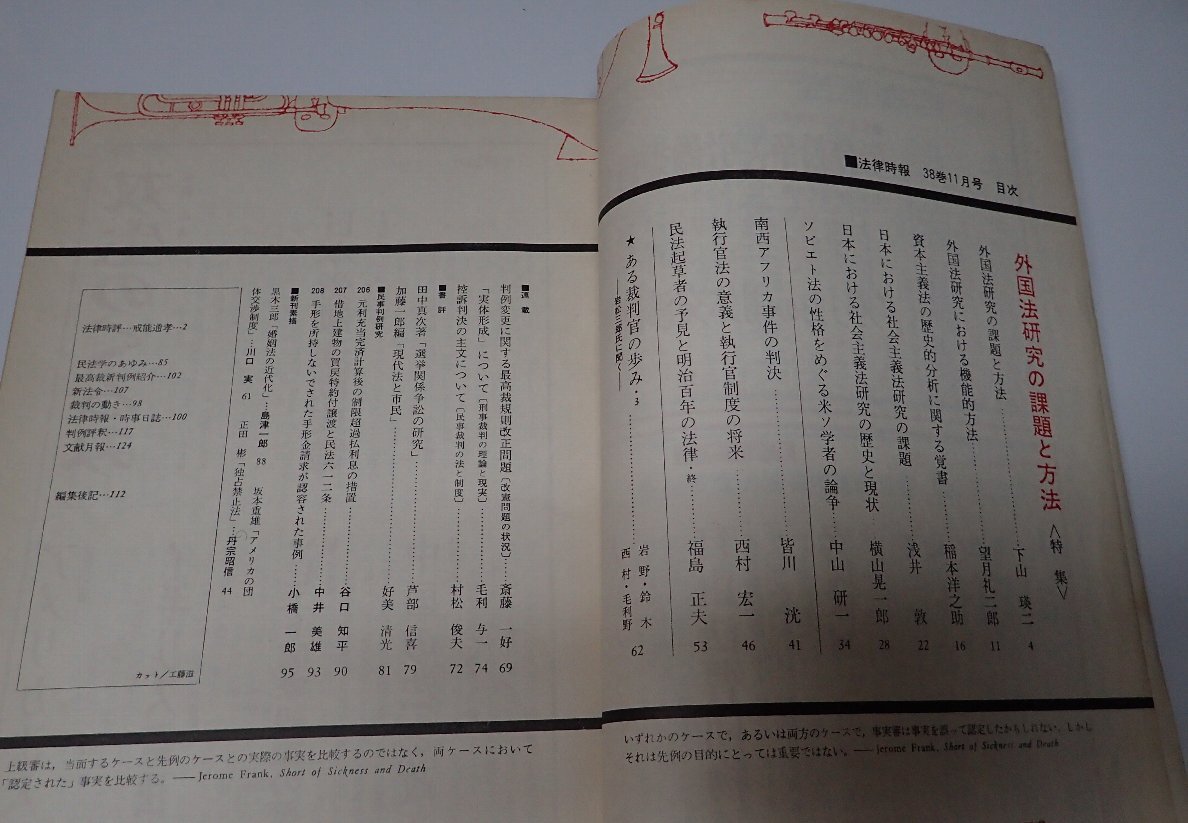 ■法律時報 38巻11月号 目次
外国法研究の課題と方法〈特集〉
外国法研究の課題と方法…………下山 瑛二 4
外国法研究における機能的方法…………望月礼二郎 11
資本主義法の歴史的分析に関する覚書…………稲本洋之助 16
日本における社会主義法研究の課題…………浅井 敦 22
日本における社会主義法研究の歴史と現状…………横山晃一郎 28
ソビエト法の性格をめぐる米ソ学者の論争…………中山 研一 34
南西アフリカ事件の判決…………皆川 洸 41
執行官法の意義と執行官制度の将来…………西村 宏一 46
民法起草者の予見と明治百年の法律・終…………福島 正夫 53
★ある裁判官の歩み・3
——岩松三郎氏に聞く——
岩野・鈴木
西村・毛利野 62
いずれかのケースで，あるいは両方のケースで，事実審は事実を誤って認定したかもしれない。しかし
それは先例の目的にとっては重要ではない。——Jerome Frank, Short of Sickness and Death
■連載
判例変更に関する最高裁規則改正問題〔改憲問題の状況〕…………斎藤 一好 69
「実体形成」について〔刑事裁判の理論と現実〕…………毛利 与一 74
控訴判決の主文について〔民事裁判の法と制度〕…………村松 俊夫 72
■書評
田中真次著「選挙関係争訟の研究」…………芦部 信喜 79
加藤一郎編「現代法と市民」…………好美 清光 81
■民事判例研究
206 元利充当完済計算後の制限超過払利息の措置…………谷口 知平 90
207 借地上建物の買戻特約付譲渡と民法六一二条…………中井 美雄 93
208 手形を所持しないでされた手形金請求が認容された事例…………小橋 一郎 95
■新刊素描
黒木三郎「婚姻法の近代化」…島津一郎 88
坂本重雄「アメリカの団
体交渉制度」…川口 実 61
正田 彬「独占禁止法」…丹宗昭信 44
法律時評…戒能通孝…2
民法学のあゆみ…85
最高裁新判例紹介…102
新法令…107
裁判の動き…98
法律時報・時事日誌…100
判例評釈…117
文献月報…124
編集後記…112
カット／工藤滋
上級審は，当面するケースと先例のケースとの実際の事実を比較するのではなく，両ケースにおいて
「認定された」事実を比較する。——Jerome Frank, Short of Sickness and Death